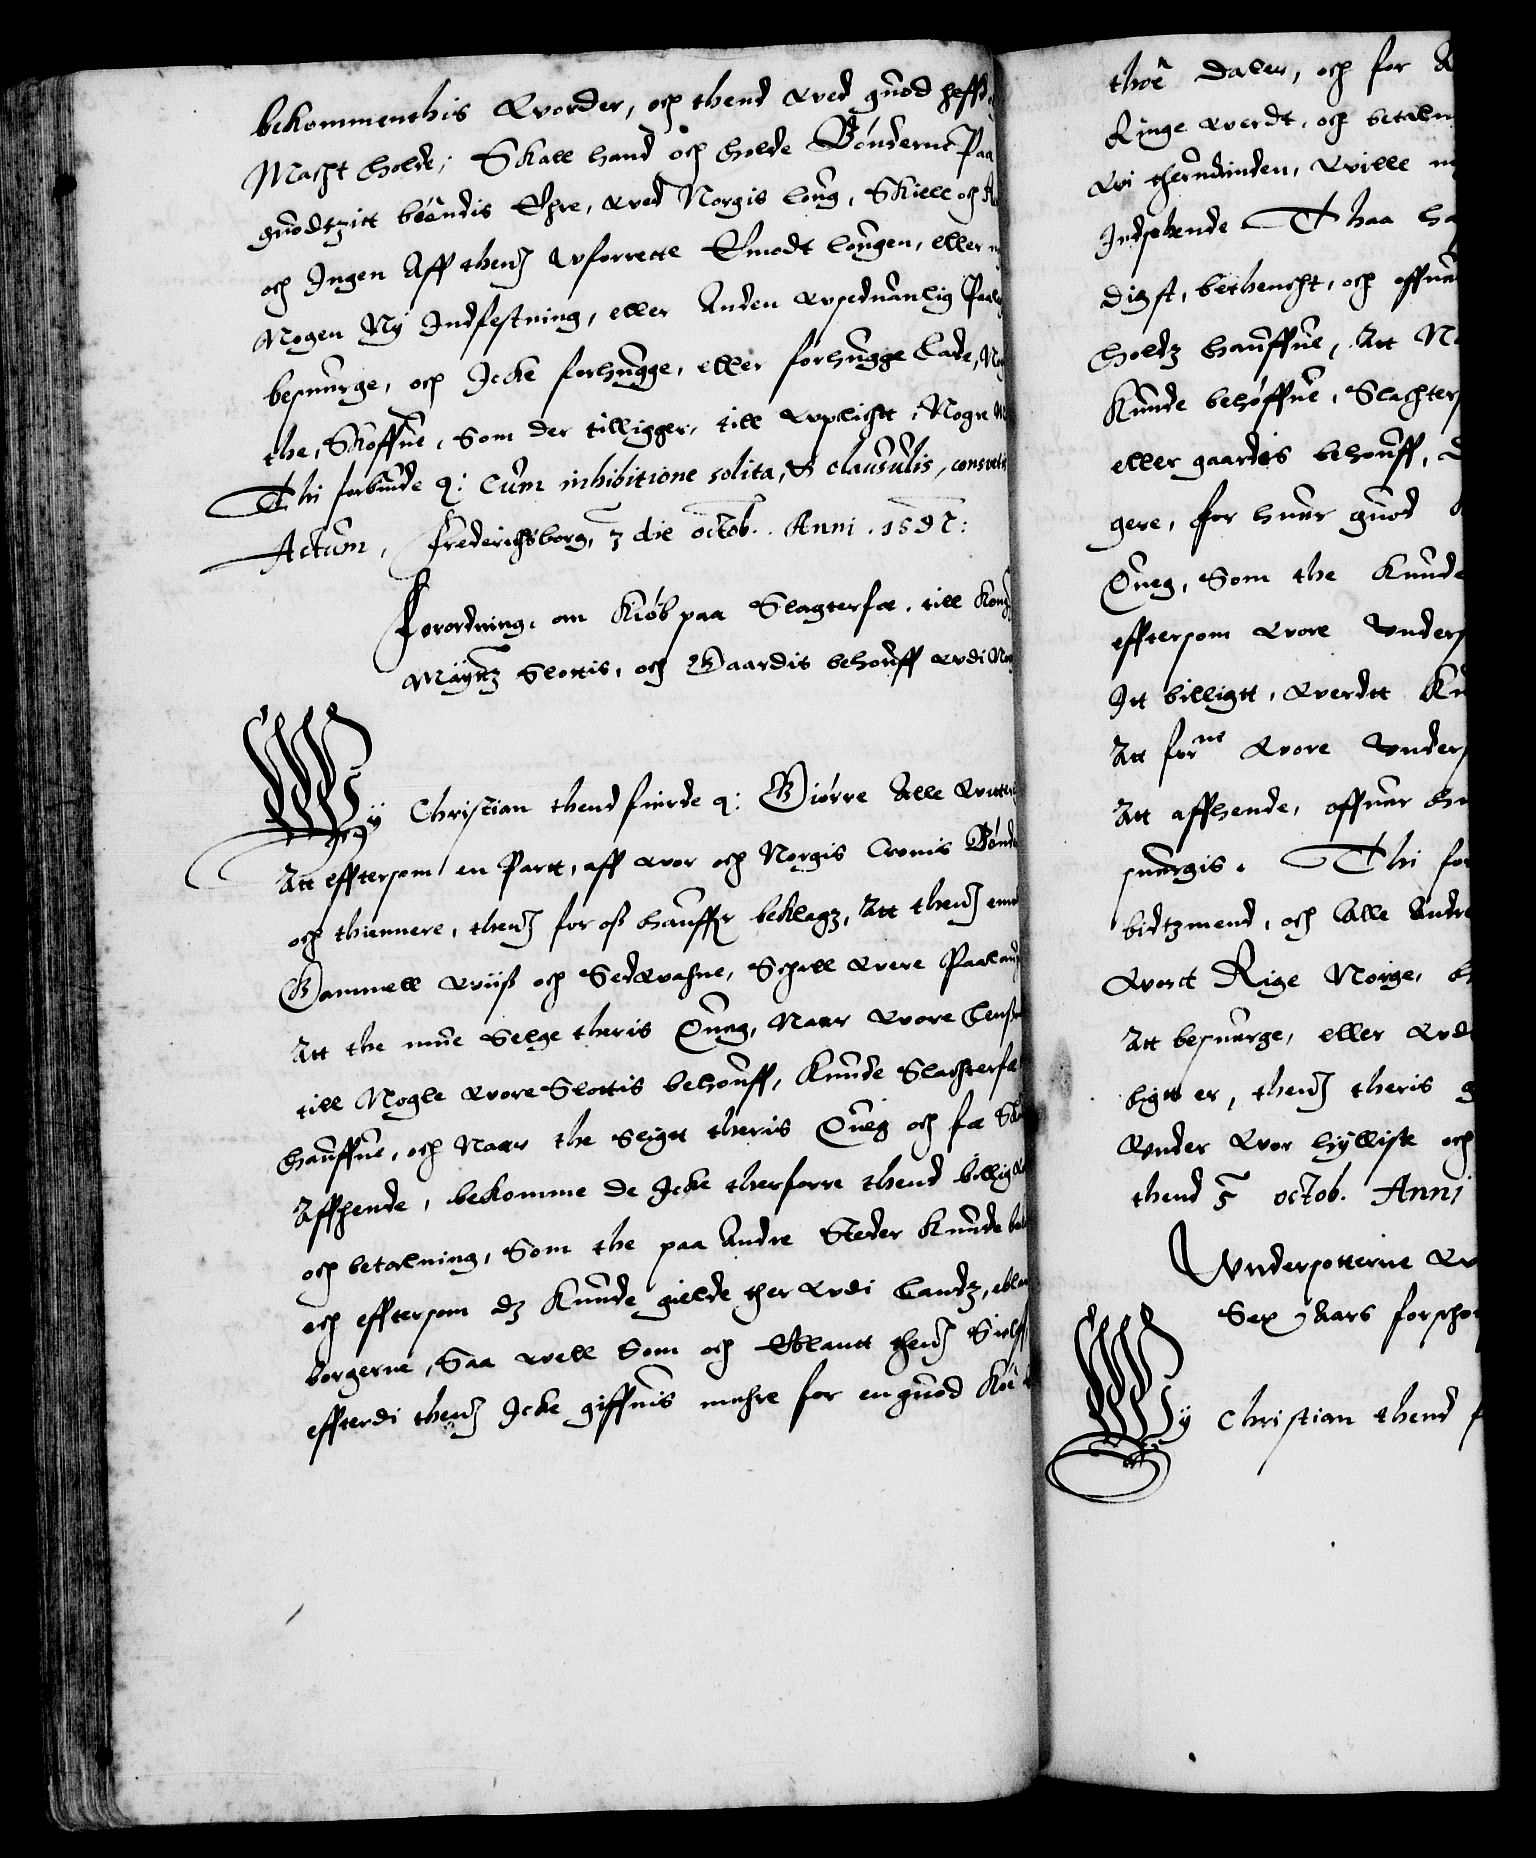 bekommenthis Worder, och thend wed guod heffd
Macht holde; Skall hand och holde Bønderne Paa
guodtzitt boendis Ehre, wed Norgis loug, Skiell och
och Ingen Aff thend Wforrette Emodt lougen, eller
Nogen Ny Indfestning, eller Anden wsedvanlig Paaleg
besuerge, och Icke forhugge, eller forhugge Lade, Nog
the, Skoffue, Som der tilligger, till wplicht, Nogre
Thi forbiude q: Cum inhibitione solita, & clausulis, consvet
Actum, Frederichsborg, 3 die octob. Anni. 1597:
Forordning, om Kiøb paa Slagterfæ, till Kong
Maÿtz Slottis, och Gaardis behouff wdi Nor
Wy Christian thend fierde q: Giørre Alle witter
Att efftersom en Partt, aff wor och Norgis Cronis Bønd
och thiennere, thend for oss hauffr beklagz, Att thend
Gammell wiiss och Sedwahne, Schall were Paalaugd
Att the mue Selge theris Queg, Naar wore Lenss
till Nogle wore Slottis behouff, Kunde Slachterfæ
hauffue, och Naar the Seigtt theris Queg och fæ
Affhende, bekomme de Icke therforre thend billig
och betalning, Som the paa Andre Steder Kunde bek
och efftersom dz Kunde gielde ther wdi Landz, eblan
borgerne, Saa well Som och Eblantt thend Sielff
effterdi thend Icke giffuis mehre for en guod Koe
thoe Daler, och for
Ringe werdt, och betaln
wi therudinden, wille
Indsehende Thaa ha
digst, bethencht, och offuer
holdz hauffue, Att N
Kunde behøffue, Slachter
eller gaardis behouff,
gere, for huer guod
Queg, Som the Kunde
efftersom wore Unders
Itt billigtt, werdtt Ku
Att forne wore Unders
Att affhende, offuer
suergis. Thi for
bidtzmend, och Alle Andre
wortt Rige Norge,
Att besuerge, eller wdi
ligtt er, thend theris
Under wor hylliste och
thend 5 octob. Anni
Undersotterne
Sex Aars forscho
Wy Christian thend f